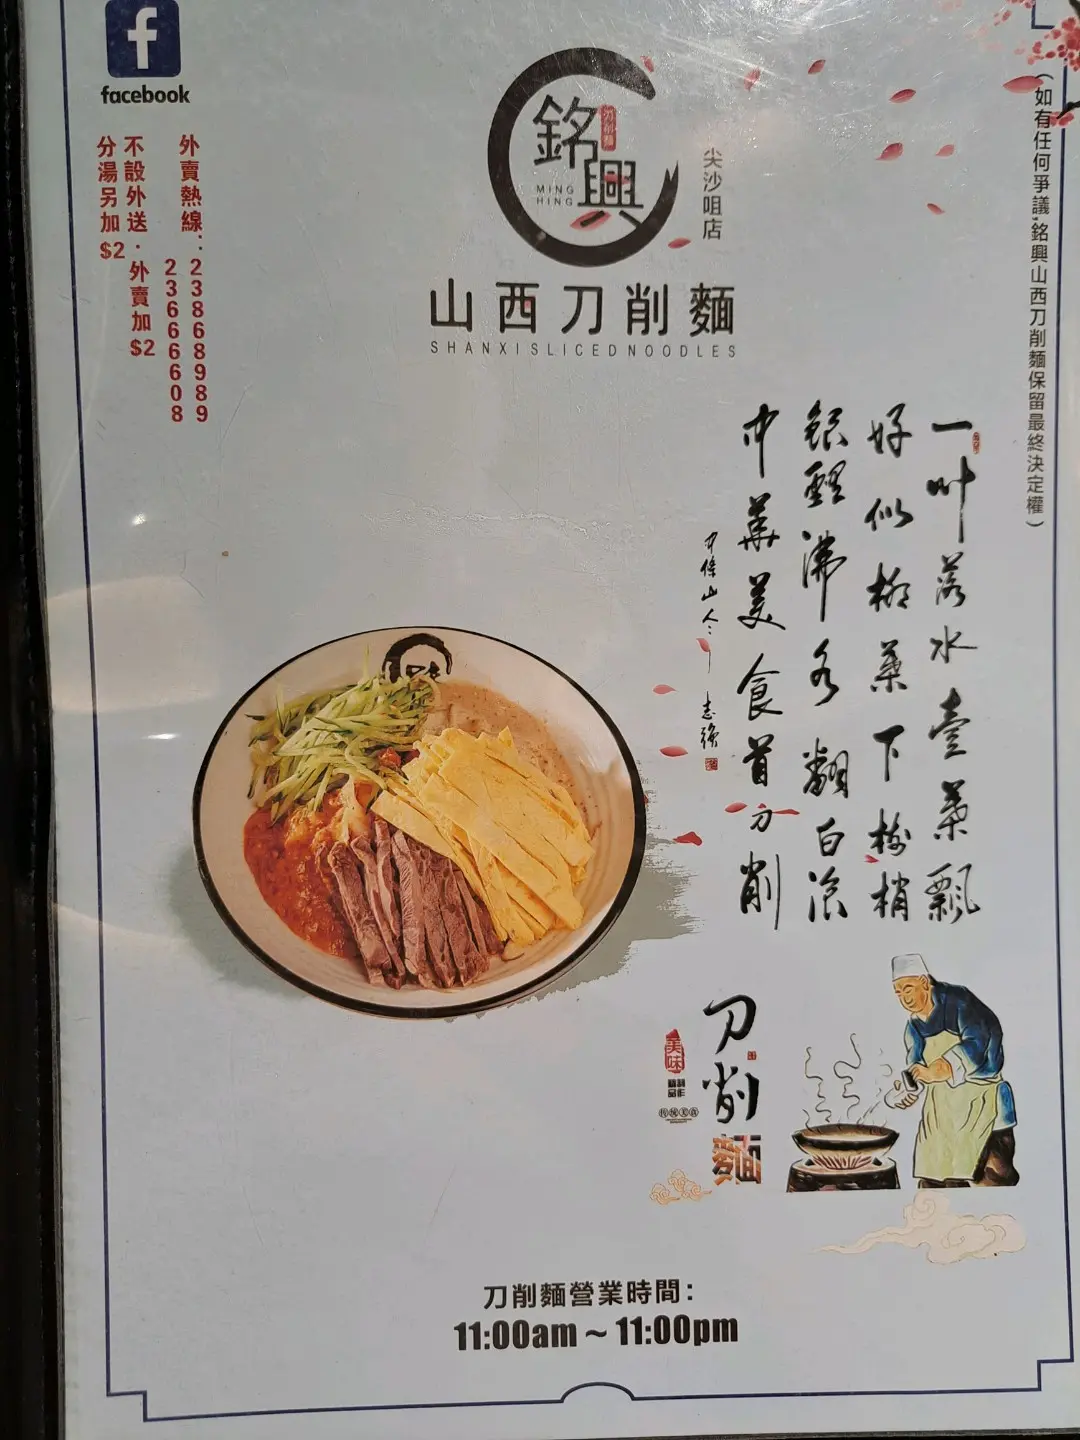 facebook
外賣熱線：23868989
23666608
不設外送·外賣加$2
分湯另加$2
銘興
刀削麵
MING
HING
尖沙咀店
山西刀削麵
SHANXI SLICED NOODLES
（如有任何爭議,銘興山西刀削麵保留最終決定權）
一叶落水壹葉飄
好似柳葉下樹梢
銀聖沸水翻白浪
中華美食首刀削
中條山人
志強
刀削麵
美味
11:00am ~ 11:00pm
刀削麵營業時間：